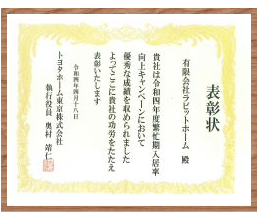 表彰状
有限会社ラビットホーム 殿
貴社は令和四年度繁忙期入居率
向上キャンペーンにおいて
優秀な成績を収められました
よってここに貴社の功労をたたえ
表彰いたします
令和四年四月十八日
トヨタホーム東京株式会社
執行役員 奥村 靖仁